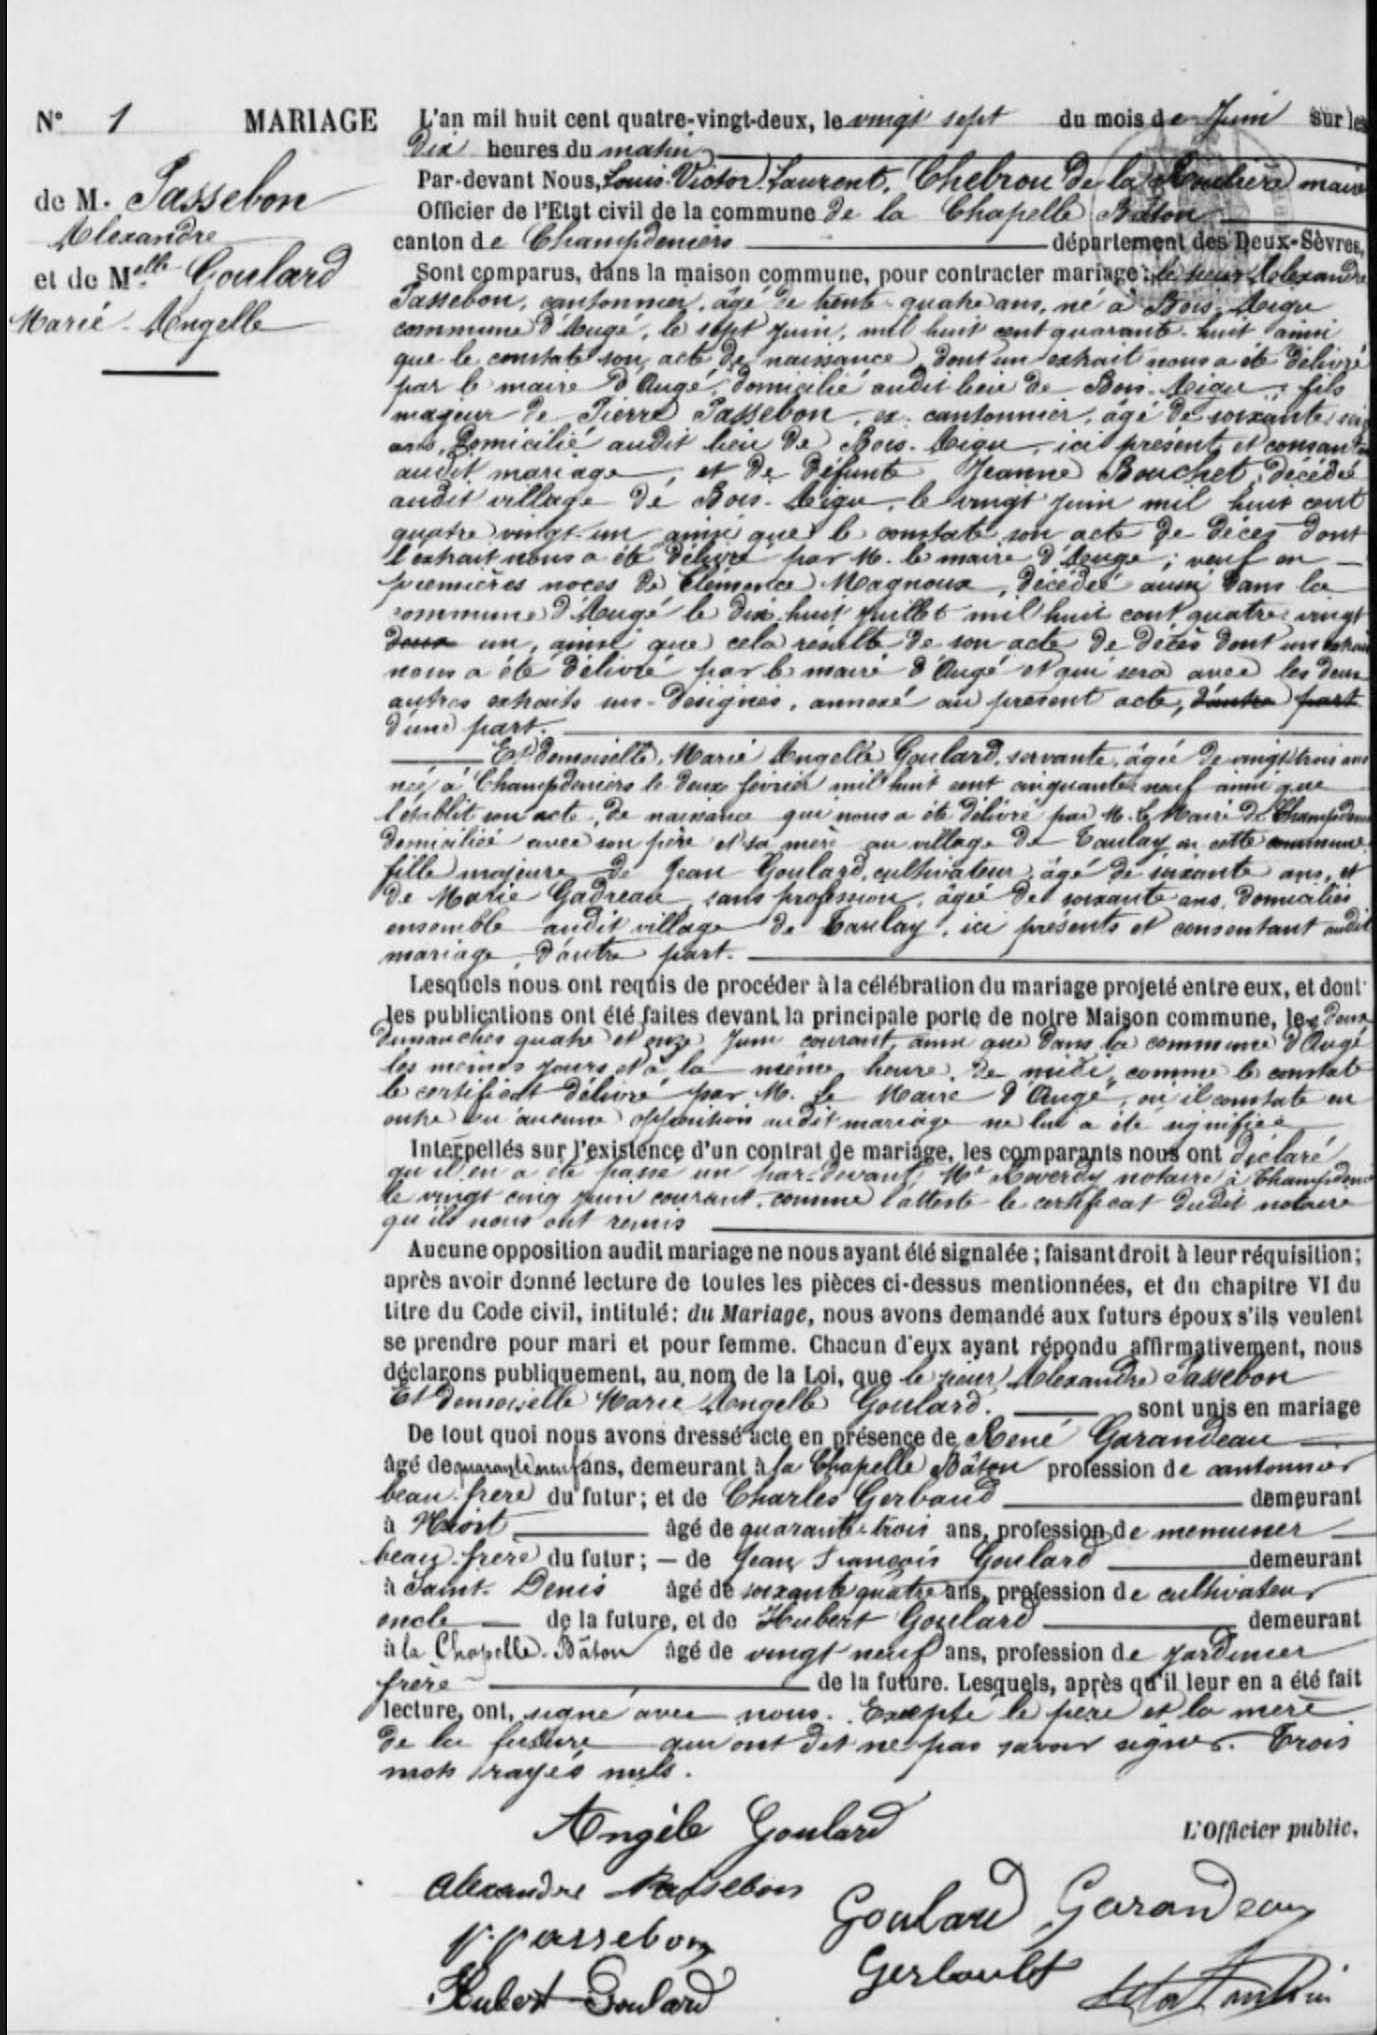 N° 1 MARIAGE
de M. Passebon
Alexandre
et de Melle Goulard
Marie-Angelle
L'an mil huit cent quatre-vingt-deux, le vingt sept du mois de Juin sur les
dix heures du matin
Par-devant Nous, Louis Victor Laurent, Chebrou de la Roulière maire
Officier de l'Etat civil de la commune de la Chapelle Bâton
canton de Champdeniers département des Deux-Sèvres,
Sont comparus, dans la maison commune, pour contracter mariage : le sieur Alexandre
Passebon, cantonnier, âgé de trente-quatre ans, né à Bois-Aigu
commune d'Augé, le sept juin, mil huit cent quarante-huit ainsi
que le constate son acte de naissance, dont un extrait nous a été délivré
par le maire d'Augé, domicilié audit lieu de Bois-Aigu, fils
majeur de Pierre Passebon, ex-cantonnier, âgé de soixante
ans, domicilié audit lieu de Bois-Aigu, ici présent et consentant
audit mariage, et de défunte Jeanne Bouchet, décédée
audit village de Bois-Aigu, le vingt juin mil huit cent
quatre vingt-un ainsi que le constate son acte de décès dont
l'extrait nous a été délivré par M. le maire d'Augé ; veuf en
premières noces de Clémence Magnoux, décédée aussi dans la
commune d'Augé le dix-huit juillet mil huit cent quatre-vingt
deux un, ainsi que cela résulte de son acte de décès dont un extrait
nous a été délivré par le maire d'Augé et qui sera avec les deux
autres extraits sus-désignés, annexé au présent acte, d'autre part
d'une part.
Et demoiselle Marie Angelle Goulard, servante, âgée de vingt trois ans
née à Champdeniers le deux février mil huit cent cinquante neuf ainsi que
l'établit son acte de naissance qui nous a été délivré par M. le Maire de Champdeniers
domiciliée avec son père et sa mère au village de Taulay en cette commune
fille majeure de Jean Goulard, cultivateur, âgé de soixante ans, et
de Marie Gadreau, sans profession, âgée de soixante ans, domiciliés
ensemble audit village de Taulay, ici présents et consentant audit
mariage, d'autre part.
Lesquels nous ont requis de procéder à la célébration du mariage projeté entre eux, et dont
les publications ont été faites devant la principale porte de notre Maison commune, les deux
dimanches quatre et onze Juin courant, ainsi que dans la commune d'Augé
les mêmes jours et à la même heure de midi, comme le constate
le certificat délivré par M. le Maire d'Augé, où il constate en
outre qu'aucune opposition audit mariage ne lui a été signifiée
Interpellés sur l'existence d'un contrat de mariage, les comparants nous ont déclaré
qu'il en a été passé un par-devant Me Laverdy notaire à Champdeniers
le vingt cinq juin courant, comme l'atteste le certificat dudit notaire
qu'ils nous ont remis
Aucune opposition audit mariage ne nous ayant été signalée ; faisant droit à leur réquisition ;
après avoir donné lecture de toutes les pièces ci-dessus mentionnées, et du chapitre VI du
titre du Code civil, intitulé : du Mariage, nous avons demandé aux futurs époux s'ils veulent
se prendre pour mari et pour femme. Chacun d'eux ayant répondu affirmativement, nous
déclarons publiquement, au nom de la Loi, que le sieur Alexandre Passebon
Et demoiselle Marie Angelle Goulard. sont unis en mariage
De tout quoi nous avons dressé acte en présence de René Garandeau
âgé de quarante neuf ans, demeurant à la Chapelle Bâton profession de cantonnier
beau-frère du futur ; et de Charles Gerbaud demeurant
à Niort âgé de quarante-trois ans, profession de menuisier
beau-frère du futur ; — de Jean François Goulard demeurant
à Saint-Denis âgé de soixante quatre ans, profession de cultivateur
oncle de la future, et de Hubert Goulard demeurant
à la Chapelle-Bâton âgé de vingt neuf ans, profession de jardinier
frère de la future. Lesquels, après qu'il leur en a été fait
lecture, ont, signé avec nous. Excepté le père et la mère
de la future qui ont dit ne pas savoir signer. Trois
mots rayés nuls.
Angèle Goulard
L'Officier public,
Alexandre Passebon
Goulard Garandeau
P. Passebon
Gerbault
Hubert Goulard